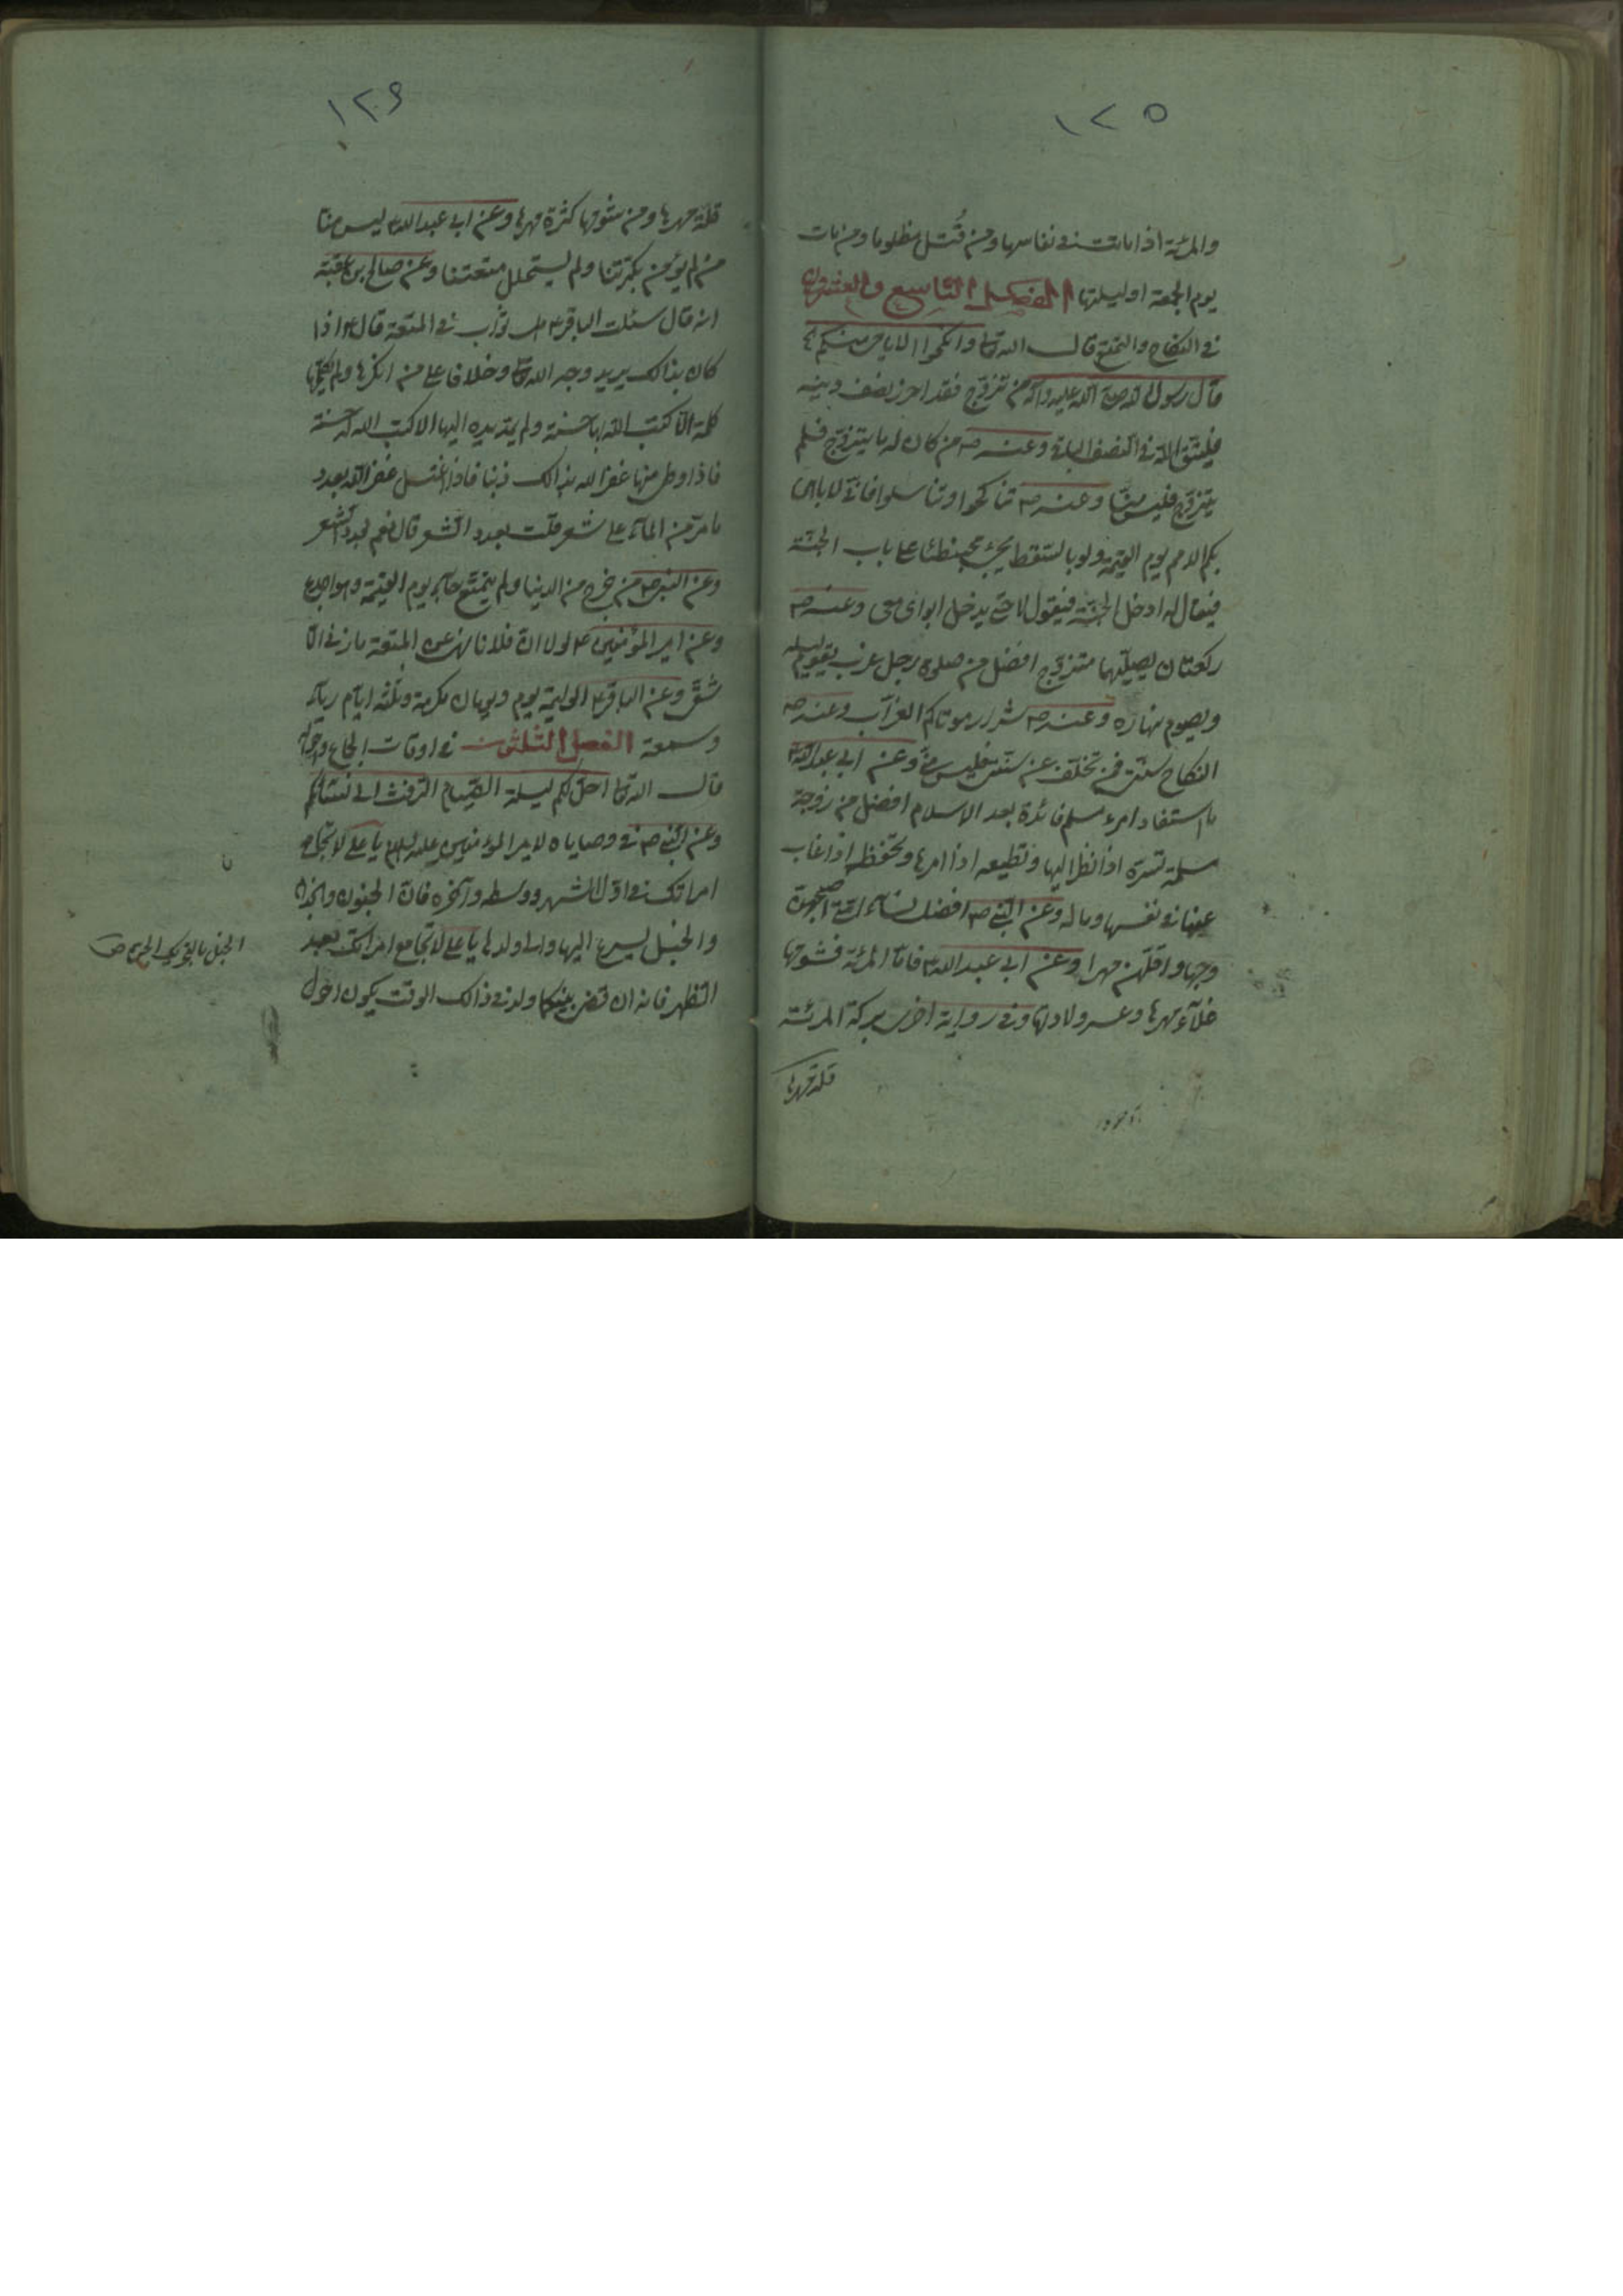 ١٢٥
والمرئة اذا ماتت في نفاسها ومن قُتل مظلوما ومن مات
يوم الجمعة او ليلتها الفصل التاسع والعشرون
في النكاح والتمتع قال الله تعا وانكحوا الايامى منكم
قال رسول الله صلى الله عليه وآله من تزوّج فقد احرز نصف دينه
فليتق الله في النصف الباقي وعنه ص من كان له ما يتزوّج فلم
يتزوّج فليس منّا وعنه ص تناكحوا وتناسلوا فانّي اباهي
بكم الامم يوم القيمة ولو بالسقط يجيئ محبنطئا على باب الجنّة
فيقال له ادخل الجنّة فيقول لا حتى يدخل ابواى معى وعنه ص
ركعتان يصلّيهما متزوّج افضل من صلوة رجل عزب يقوم ليله
ويصوم نهاره وعنه ص شرار موتاكم العزّاب وعنه ص
النكاح سنّتى فمن تخلّف عن سنّتى فليس منّى وعن ابي عبد الله ع
ما استفاد امرء مسلم فائدة بعد الاسلام افضل من زوجة
مسلمة تسرّه اذا نظر اليها وتطيعه اذا امرها وتحفظه اذا غاب
عنها في نفسها وماله وعن النبي ص افضل نساء امّتي اصبحهنّ
وجها واقلّهن مهرا وعن ابي عبد الله ع فامّا المرئة فشومها
غلاء مهرها وعسر ولادتها وفي رواية اخرى بركة المرئة
قلة مهرها
١٢٦
قلّة مهرها ومن شومها كثرة مهرها وعن ابي عبد الله ع ليس منّا
من لم يؤمن بكرّتنا ولم يستحلل متعتنا وعن صالح بن عقبة
انه قال سئلت الباقر ع هل ثواب في المتعة قال ع اذا
كان بذالك يريد وجه الله تعا وخلافا على من انكرها ولم يكلّمها
كلمة الّا كتب الله بها حسنة ولم يمدّ يده اليها الا كتب الله له حسنة
فاذا دخل منها غفر الله بذالك ذنبا فاذا اغتسل غفر الله بعدد
ما مرّ من الماء على شعر قلت بعدد الشعر قال نعم بعدد الشعر
وعن النبى ص من خرج من الدنيا ولم يتمتّع جاء يوم القيمة وهو اجدع
وعن امير المؤمنين ع لولا انّ فلانا نهى عن المتعة ما زنى الّا
شقىّ وعن الباقر ع الوليمة يوم ويومان مكرمة وثلثه ايّام رياء
وسمعة الفصل الثلثون في اوقات الجماع
قال الله تعا احل لكم ليلة الصّيام الرّفث الى نسائكم
وعن النّبي ص في وصاياه لامير المؤمنين عليه السلم يا على لا تجامع
امراتك في اوّل الشهر ووسطه وآخره فانّ الجنون والجذام
والخبل يسرع اليها والى ولدها يا على لا تجامع امرأتك بعد
الظهر فانه ان قضى بينكما ولد في ذالك الوقت يكون احول
الخبل بالتحريك الجن ص